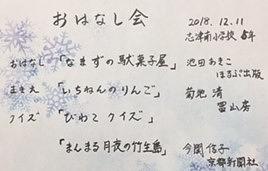 おはなし会 2018.12.11
志津南小学校 5年
おはなし「なまずの駄菓子屋」 池田あきこ
ほるぷ出版
すばなし 「いちねんのりんご」 菊池 清
冨山房
クイズ 「びわこ クイズ」
「まんまる月夜の竹生島」 今関信子
京都新聞社